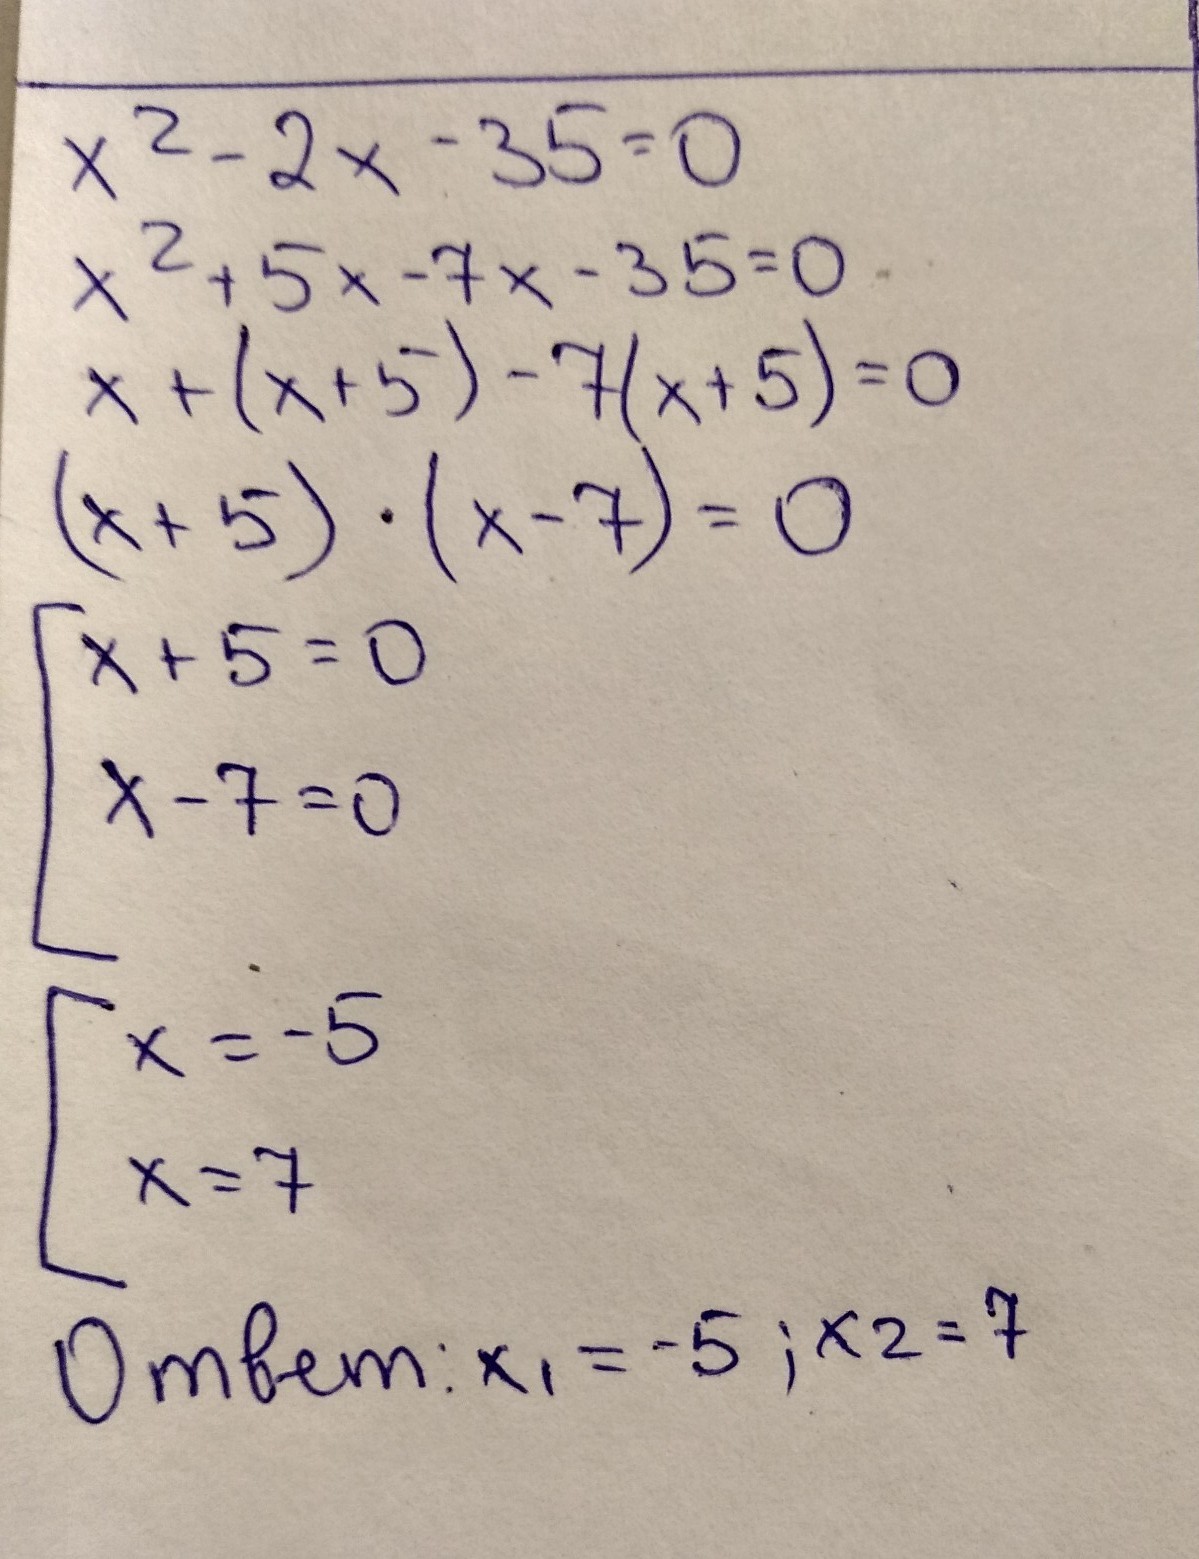 x² - 2x - 35 = 0
x² + 5x - 7x - 35 = 0
x + (x + 5) - 7(x + 5) = 0
(x + 5) · (x - 7) = 0
x + 5 = 0
x - 7 = 0
x = -5
x = 7
Ответ: x₁ = -5; x2 = 7